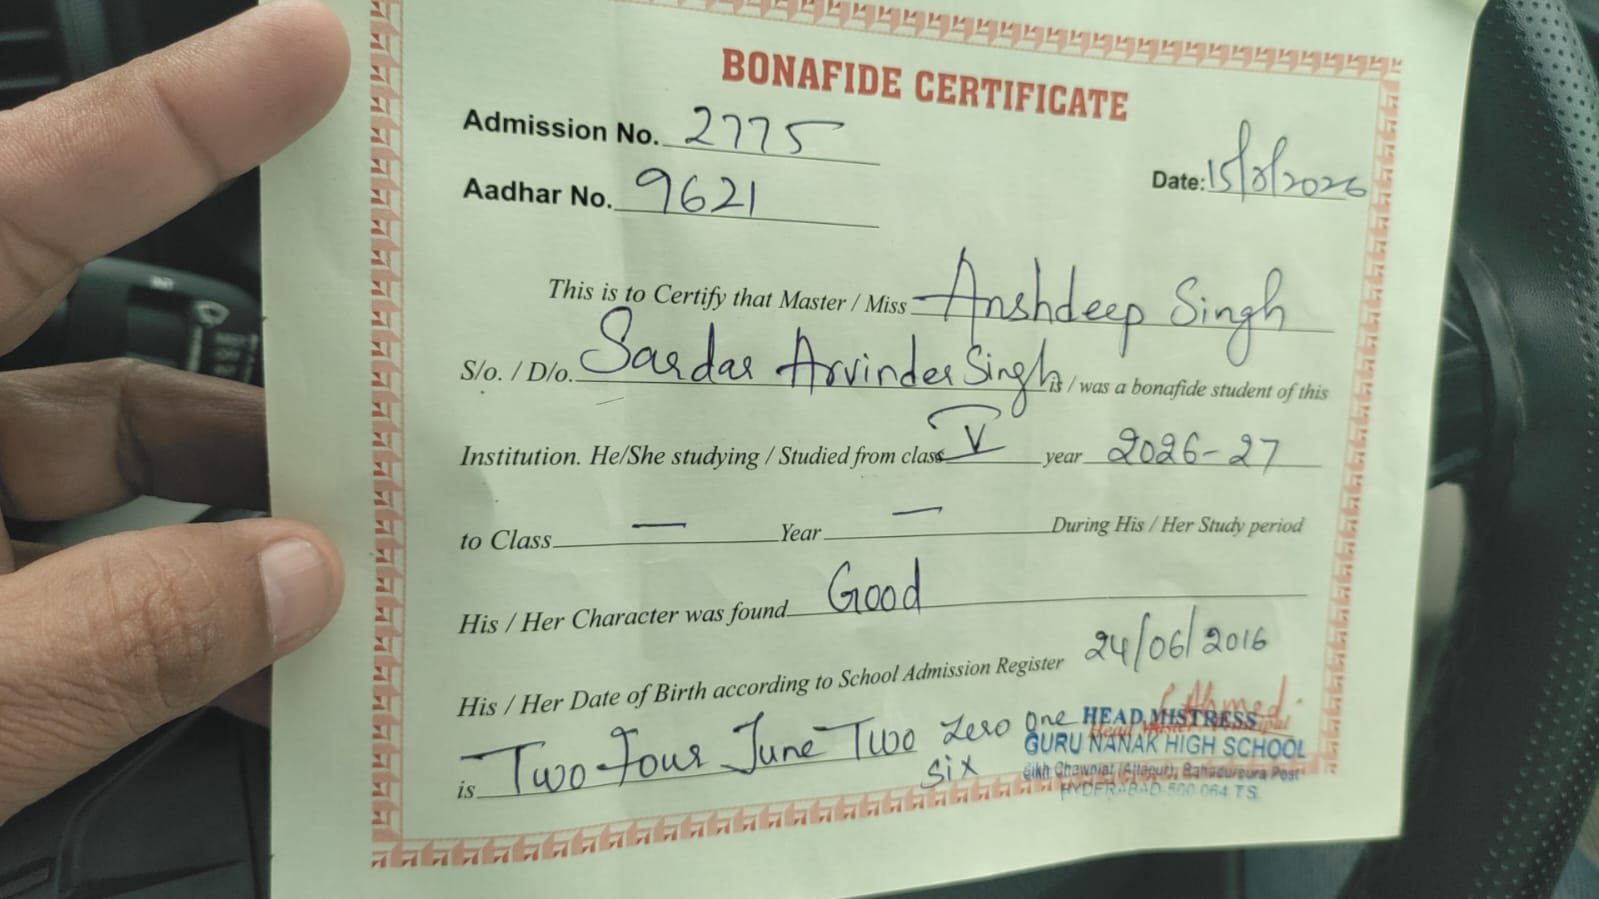 BONAFIDE CERTIFICATE
Admission No. 2775
Date: 15/8/2026
Aadhar No. 9621
This is to Certify that Master / Miss Anshdeep Singh
S/o. / D/o. Sardar Arvinder Singh is / was a bonafide student of this
Institution. He/She studying / Studied from class V year 2026-27
to Class — Year — During His / Her Study period
His / Her Character was found Good
His / Her Date of Birth according to School Admission Register 24/06/2016
is Two Four June Two Zero One
Six
HEAD MISTRESS
GURU NANAK HIGH SCHOOL
Sikh Chawniat (Attapur), Bahadurpura Post
HYDERABAD-500 064 T.S.